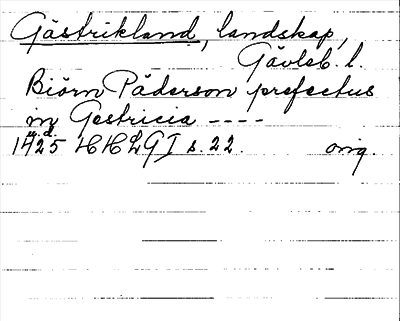 Gästrikland, landskap,
Gävleb. l.
Biörn Päderson prefectus
in Gestricia ----
u.d.
1425 HHLG I s. 22. orig.